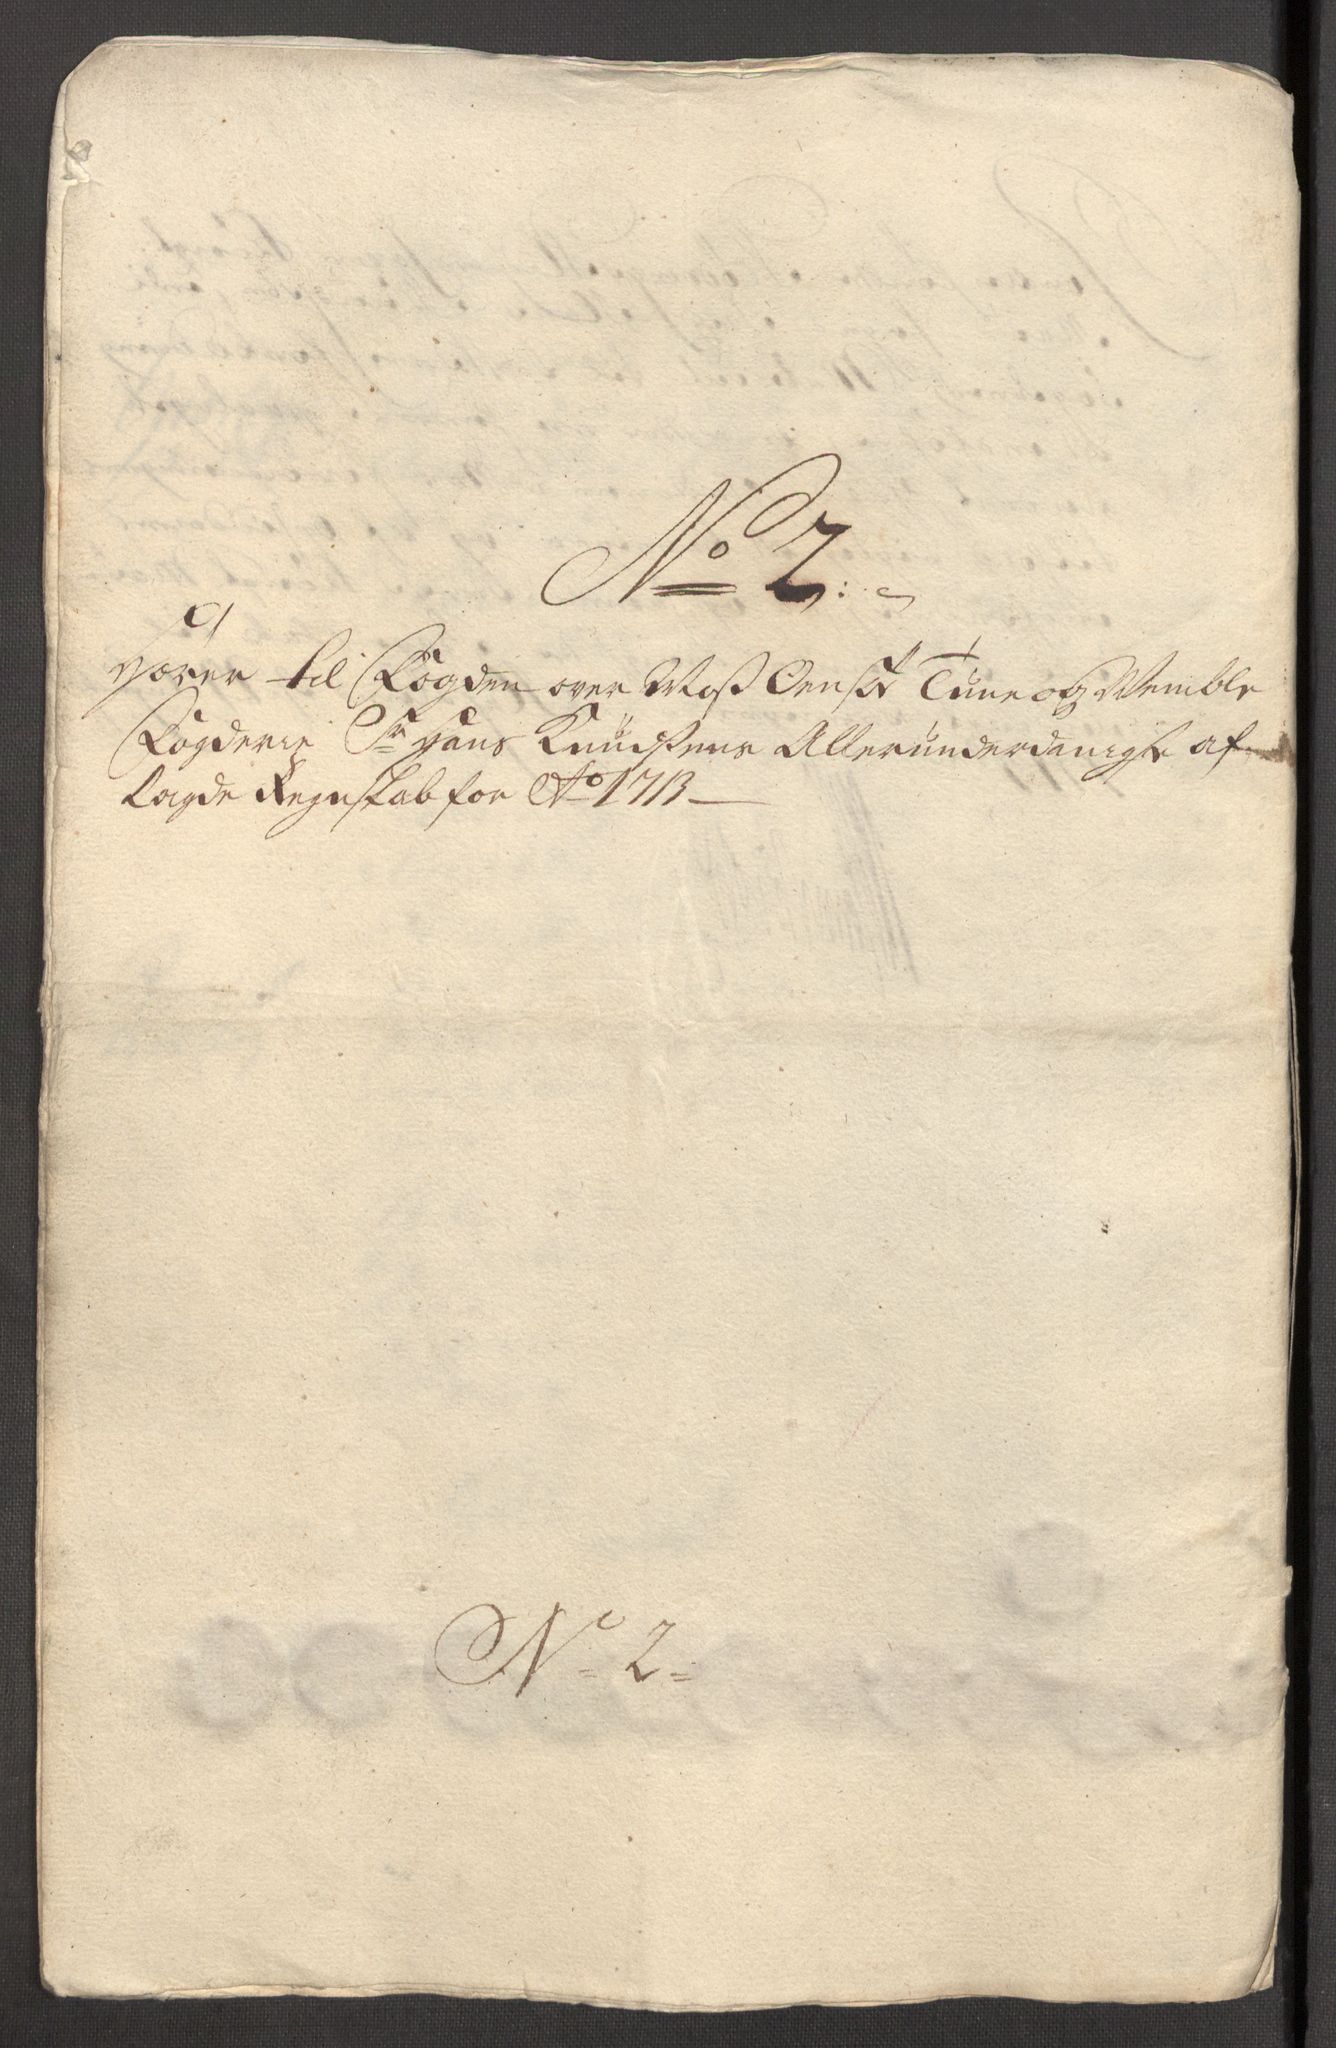 No 2.
Hører til Fogden over Moss Oensøe Tune og Wemble
Fogderie Sr Hans Knudsens Allerunderdanigste af
lagde Regnskab for Ao 1713
No 2